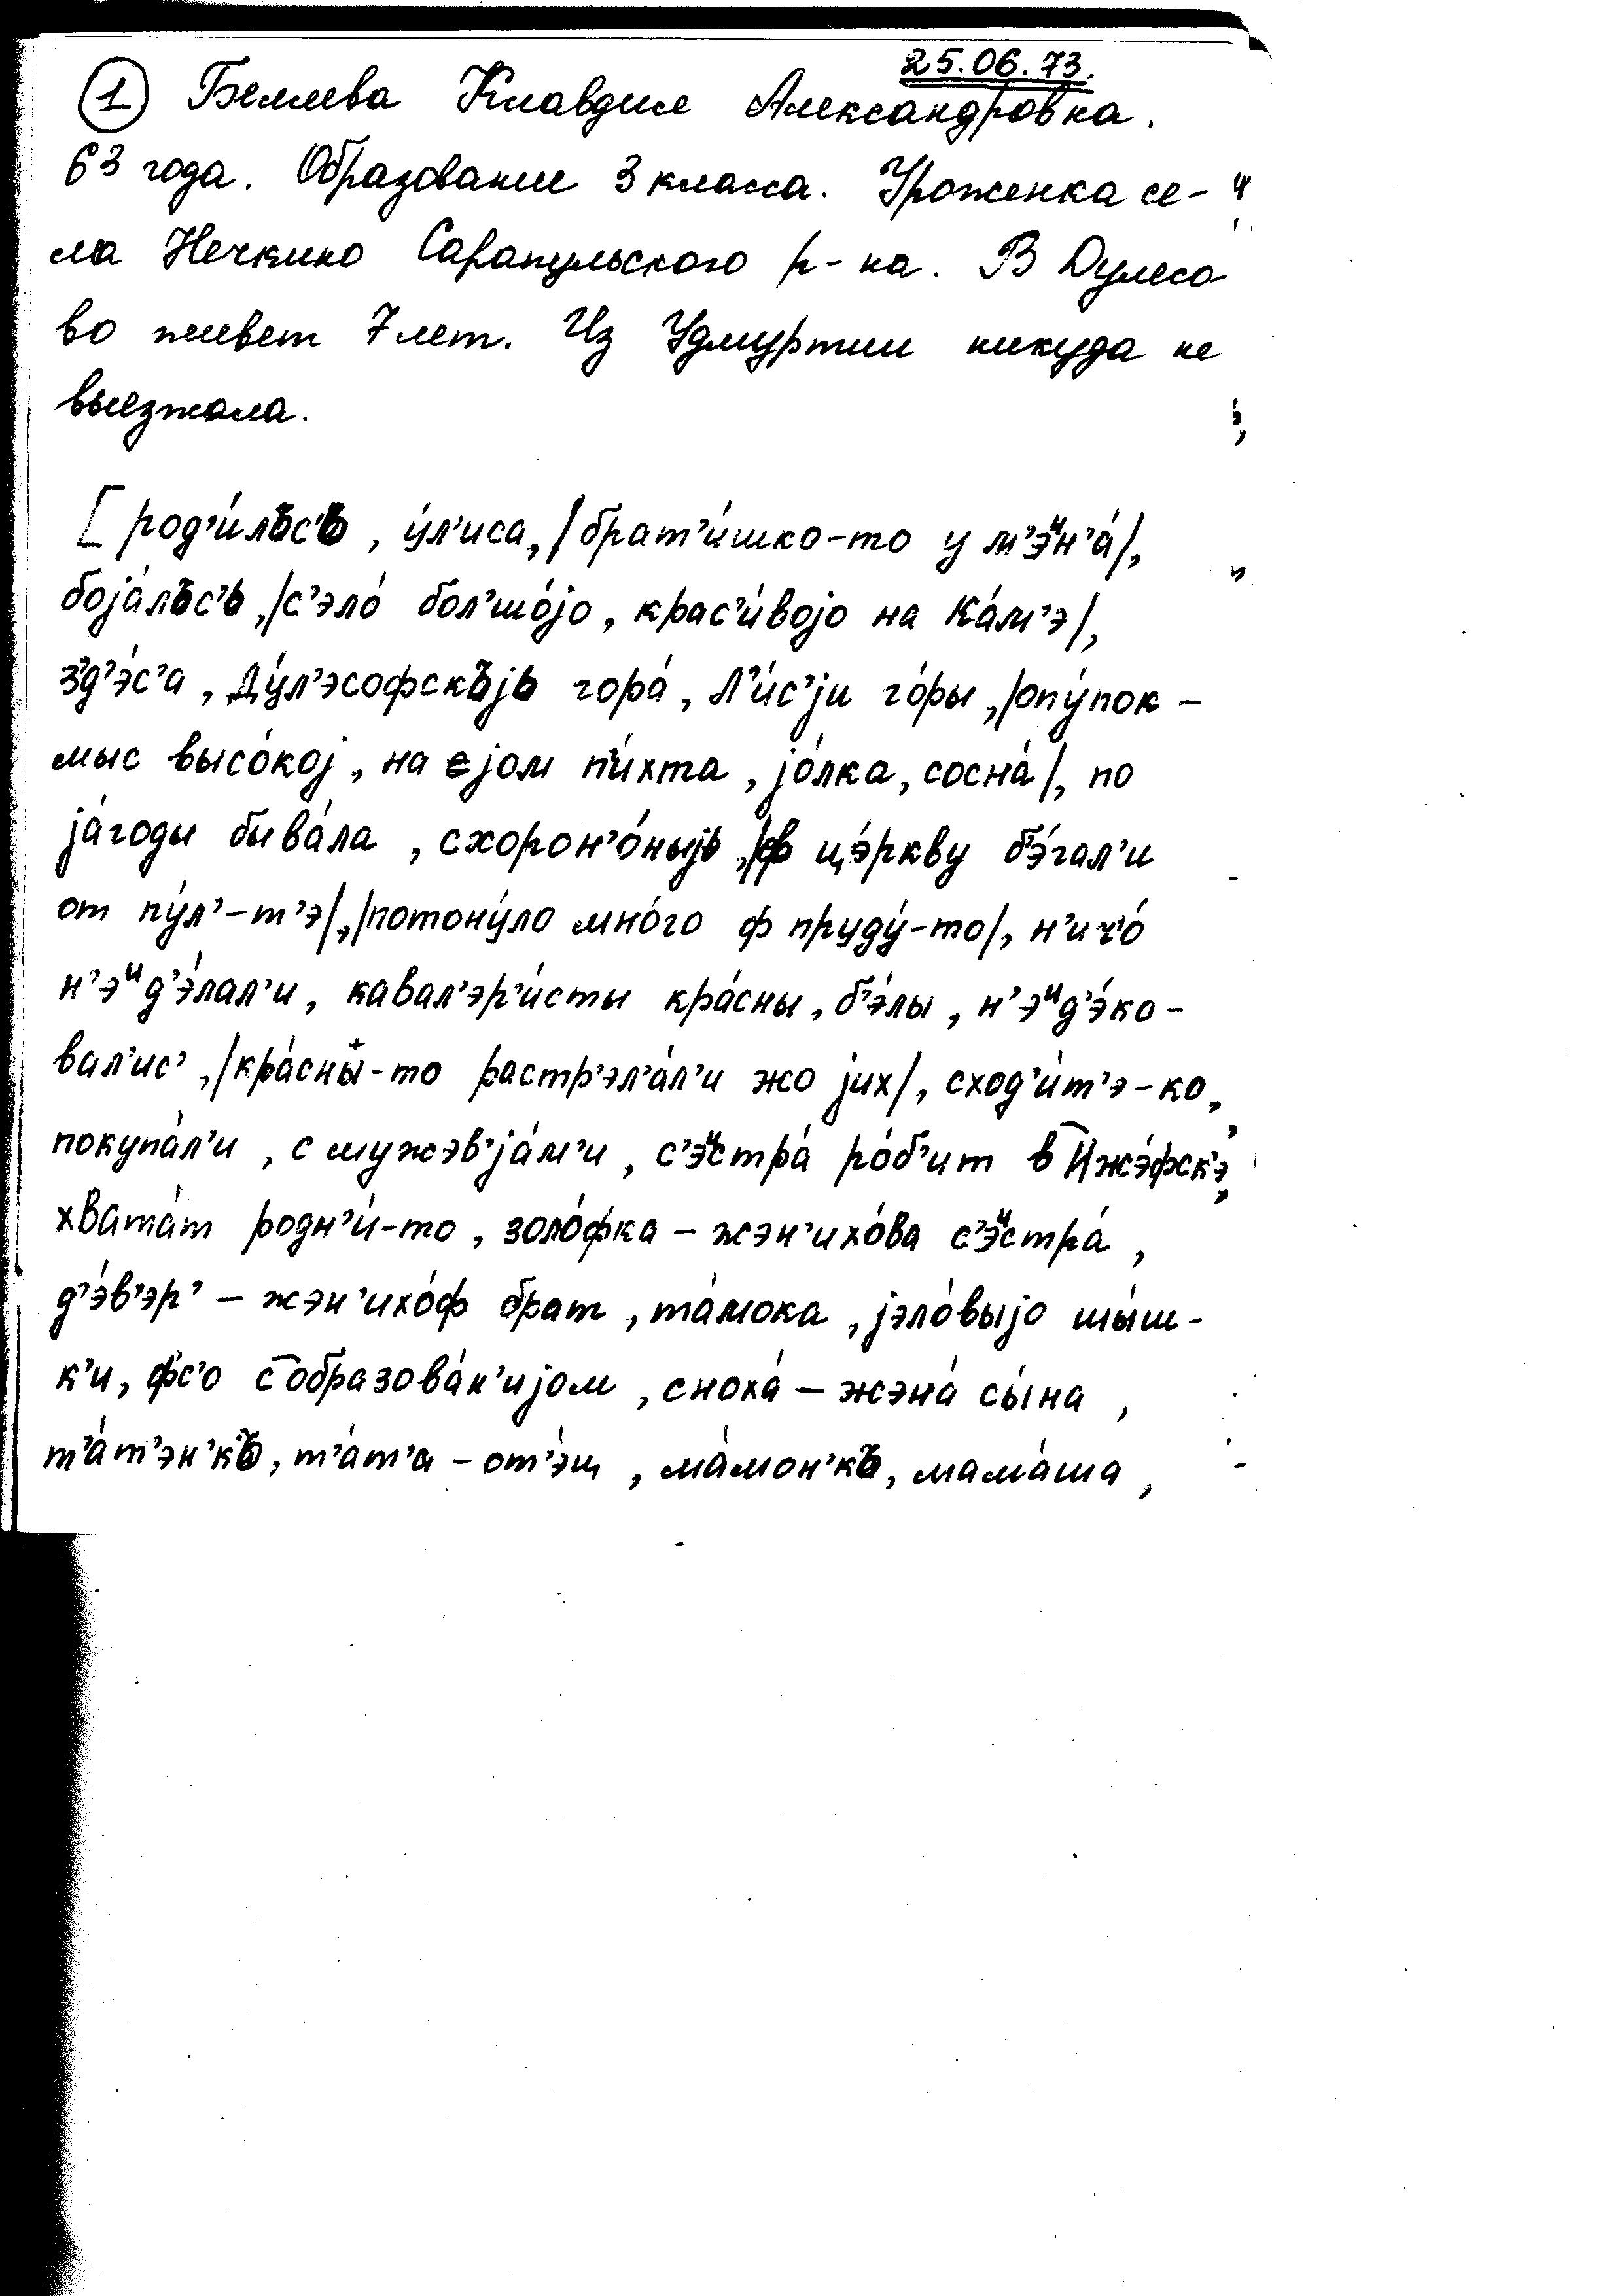 25.06.73.
① Беляева Клавдия Александровна.
63 года. Образование 3 класса. Уроженка се-
ла Нечкино Сарапульского р-на. В Дулесо-
во живет 7 лет. Из Удмуртии никуда не
выезжала.
[род'и́лъс'ь, у́л'иса, /брат'и́шко-то у м'эᶦн'а́/,
боjа́лъс'ь, /с'эло́ бол'шо́jо, крас'и́воjо на Ка́м'э/,
з'д'э́с'а, Ду́л'эсофскъjь гора́, Л'и́с'jи го́ры, /опу́пок -
мыс высо́коj, на jом п'и́хта, jо́лка, сосна́/, по
jа́годы быва́ла, схорон'о́ныjь, /ф цэ́ркву б'э́гал'и
от пу́л'-т'э/, /потону́ло мно́го ф пруду́-то/, н'ич'о́
н'эᶦд'э́лал'и, кавал'эр'и́сты кра́сны, б'э́лы, н'эᶦд'э́ко-
вал'ис', /кра́сны-то растр'эл'а́л'и жо jих/, сход'и́т'э-ко,
покупа́л'и, с мужэв'jа́м'и, с'эᶦстра́ ро́б'ит в Ижэ́фск'э,
хвата́т родн'и́-то, золо́фка – жэн'ихо́ва с'эᶦстра́,
д'э́в'эр' – жэн'ихо́ф брат, та́мока, jэло́выjо шы́ш-
к'и, фс'о с образова́н'иjом, сноха́ – жэна́ сы́на,
т'а́т'эн'къ, т'а́т'а – от'э́ц, ма́мон'къ, мама́ша,